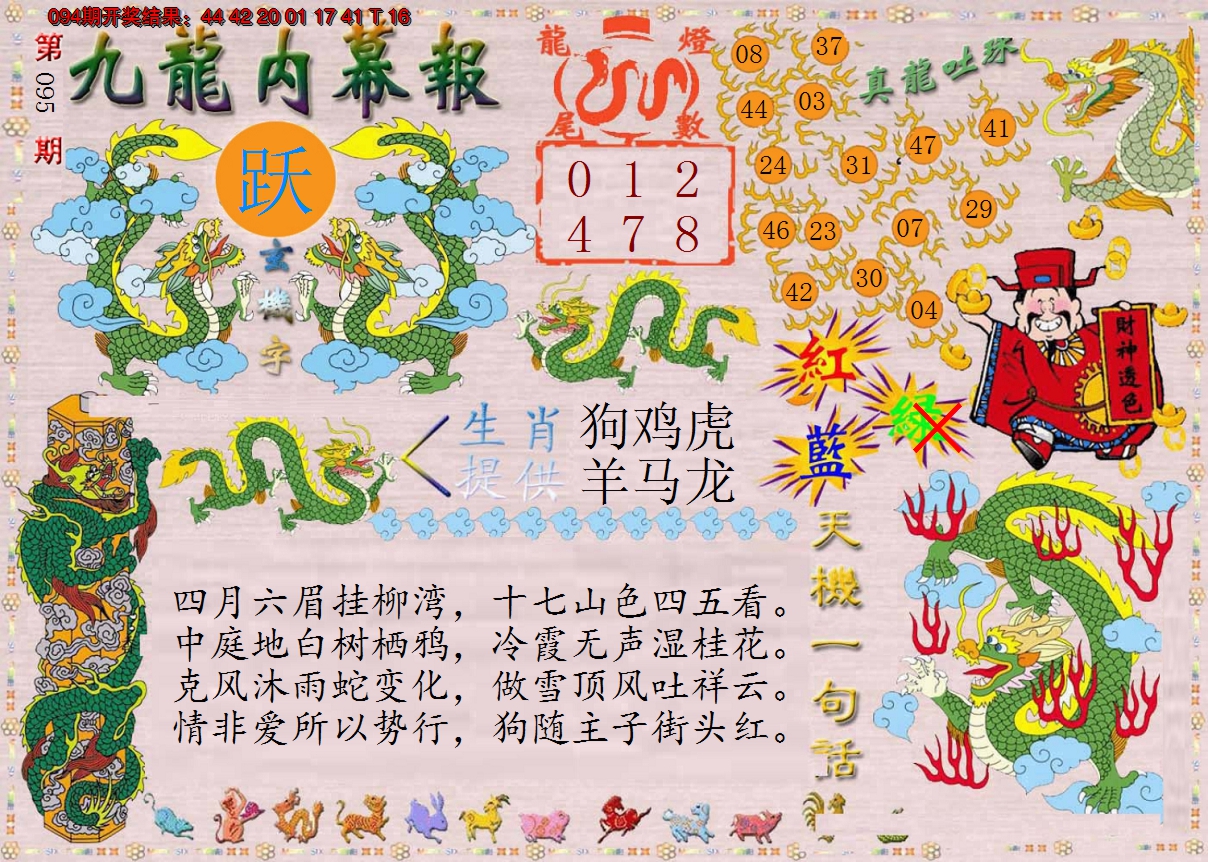 094期开奖结果：44 42 20 01 17 41 T 16
第095期
九龍内幕報
跃
玄機字
龍燈尾數
0 1 2
4 7 8
真龍吐珠
08 37
44 03
47 41
24 31
29
46 23 07
30
42 04
財神透色
紅
綠
藍
生肖 狗鸡虎
提供 羊马龙
天機一句話
四月六眉挂柳湾，十七山色四五看。
中庭地白树栖鸦，冷霞无声湿桂花。
克风沐雨蛇变化，做雪顶风吐祥云。
情非爱所以势行，狗随主子街头红。